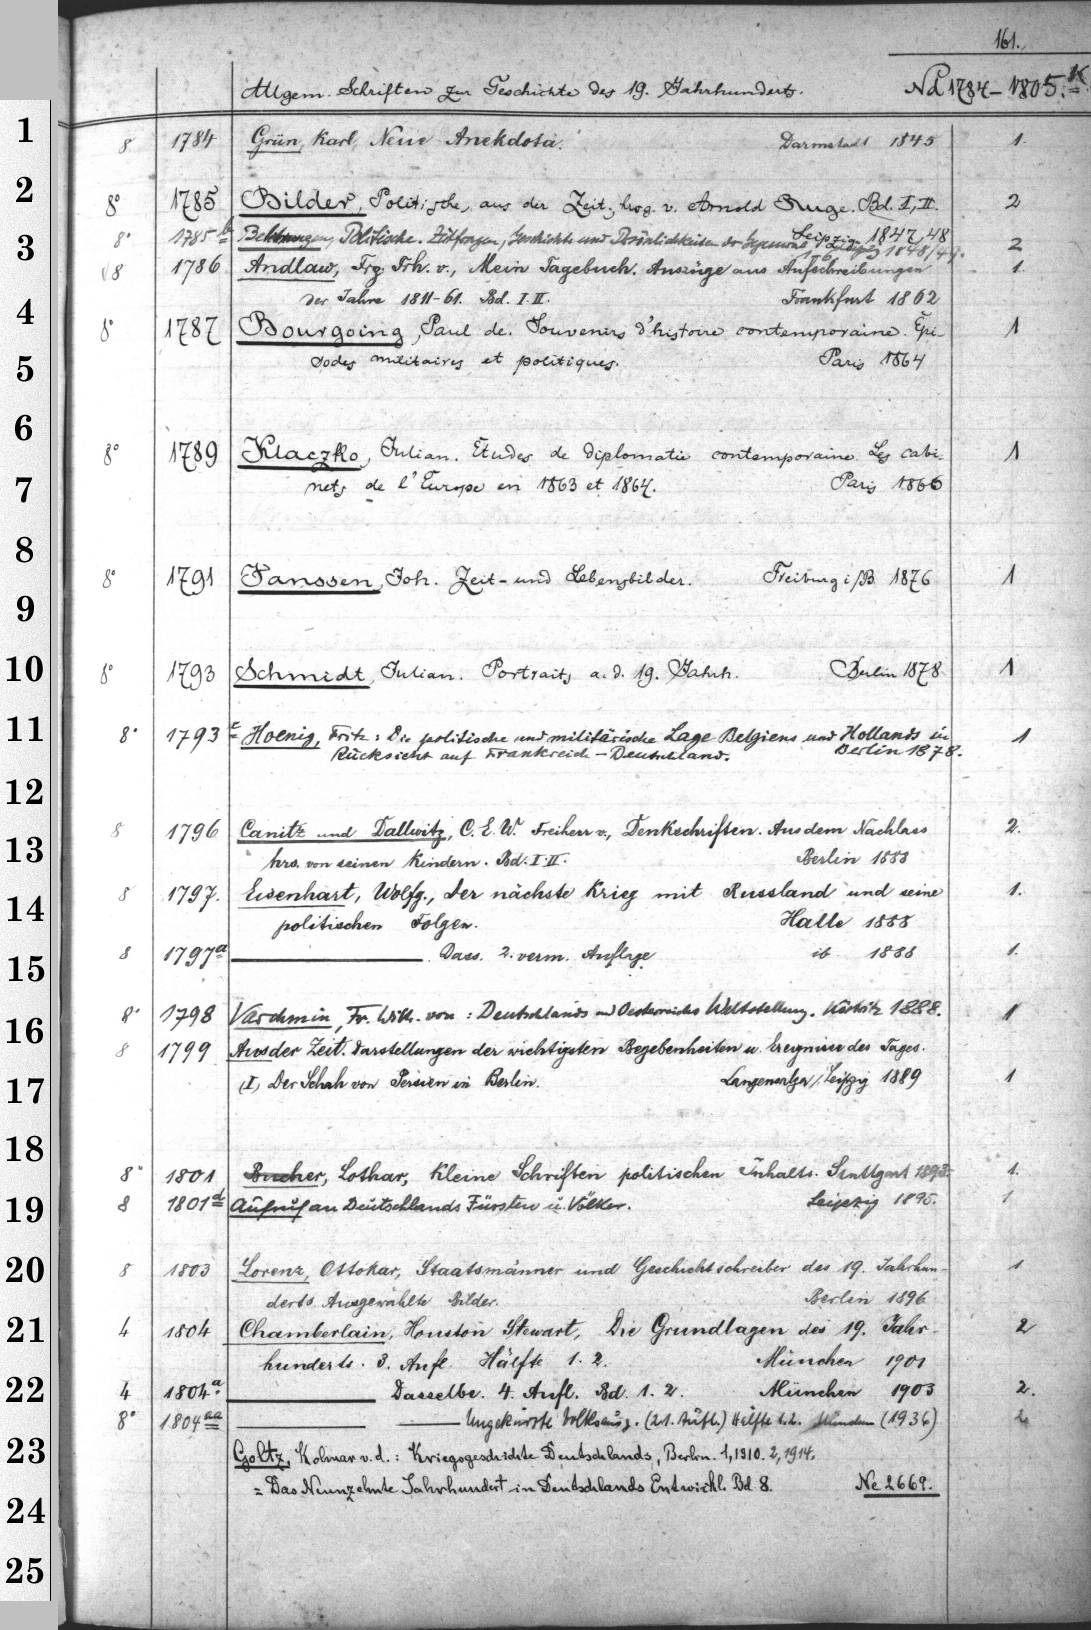 161.
Allgem. Schriften zur Geschichte des 19. Jahrhunderts. Nd 1784–1805.K
1
8 1784 Grün, Karl, Neue Anekdota. Darmstadt 1845 1.
2
8° 1785 Bilder, Politische, aus der Zeit, hrsg. v. Arnold Ruge. Bd. I, II. 2
Leipzig 1847, 48
3
8° 1785b Politische. Zeitfragen, Geschichte und Persönlichkeiten der Gegenwart 1848/49. 2
8 1786 Andlaw, Frz. Frh. v., Mein Tagebuch. Auszüge aus Aufschreibungen 1.
der Jahre 1811–61. Bd. I. II. Frankfurt 1862
4
8° 1787 Bourgoing, Paul de. Souvenirs d'histoire contemporaine. Épi- 1
sodes militaires et politiques. Paris 1864
5
6
8° 1789 Klaczko, Julian. Études de diplomatie contemporaine. Les cabi- 1
nets de l'Europe en 1863 et 1864. Paris 1866
7
8
8° 1791 Janssen, Joh. Zeit- und Lebensbilder. Freiburg i/B. 1876 1
9
10
8° 1793 Schmidt, Julian. Portraits a. d. 19. Jahrh. Berlin 1878 1
11
8° 1793c Hoenig, Fritz: Die politische und militärische Lage Belgiens und Hollands in 1
Rücksicht auf Frankreich – Deutschland. Berlin 1878.
12
8 1796 Canitz und Dallwitz, C. E. W. Freiherr v., Denkschriften. Aus dem Nachlass 2.
13
hrs. von seinen Kindern. Bd. I. II. Berlin 1888
8 1797. Eisenhart, Wolfg., der nächste Krieg mit Russland und seine 1.
14
politischen Folgen. Halle 1888
8 1797a ——— Dass. 2. verm. Auflage ib 1888 1.
15
8° 1798 Varchmin, Fr. Wilh. von: Deutschlands und Oesterreichs Weltstellung. 1888. 1
16
8 1799 Aus der Zeit. Darstellungen der wichtigsten Begebenheiten u. Ereignisse des Tages.
(I) Der Schah von Persien in Berlin. Langensalza/Leipzig 1889 1
17
18
8° 1801 Bucher, Lothar, Kleine Schriften politischen Inhalts. Stuttgart 1893. 1.
8 1801d Aufruf an Deutschlands Fürsten u. Völker. Leipzig 1895. 1
19
20
8 1803 Lorenz, Ottokar, Staatsmänner und Geschichtschreiber des 19. Jahrhun- 1
derts. Ausgewählte Bilder. Berlin 1896
21
4 1804 Chamberlain, Houston Stewart, Die Grundlagen des 19. Jahr- 2
hunderts. 3. Aufl. Hälfte 1. 2. München 1901
22
4 1804a ——— Dasselbe. 4. Aufl. Bd. 1. 2. München 1903 2.
8° 1804aa ——— ——— Ungekürzte Volksausg. (21. Aufl.) Hälfte 1. 2. München (1936) 2
23
Goltz, Kolmar v. d.: Kriegsgeschichte Deutschlands, Berlin. 1, 1910. 2, 1914.
= Das Neunzehnte Jahrhundert in Deutschlands Entwickl. Bd. 8. Ne 2669.
24
25